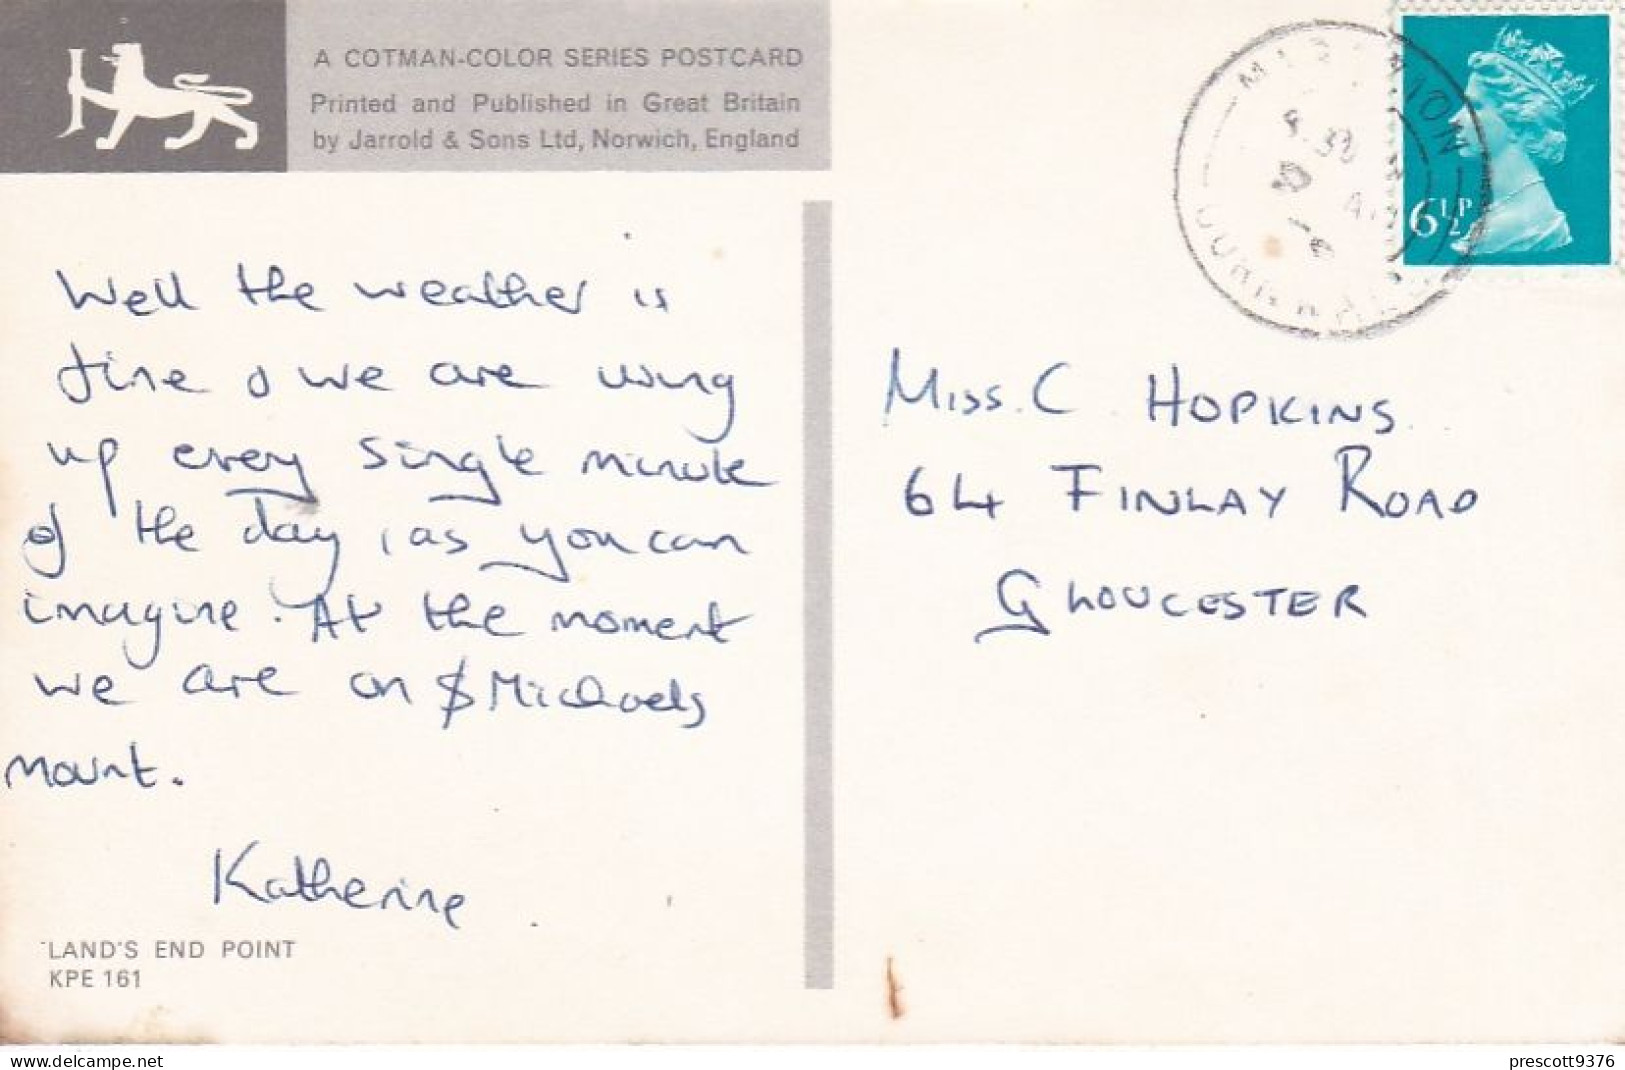 A COTMAN-COLOR SERIES POSTCARD
Printed and Published in Great Britain
by Jarrold & Sons Ltd, Norwich, England
Well the weather is
fine & we are using
up every single minute
of the day, as you can
imagine. At the moment
we are on St Michaels
mount.
Katherine.
LAND'S END POINT
KPE 161
6½P
Miss. C. HOPKINS
64 FINLAY ROAD
GLOUCESTER
www.delcampe.net
prescott9376